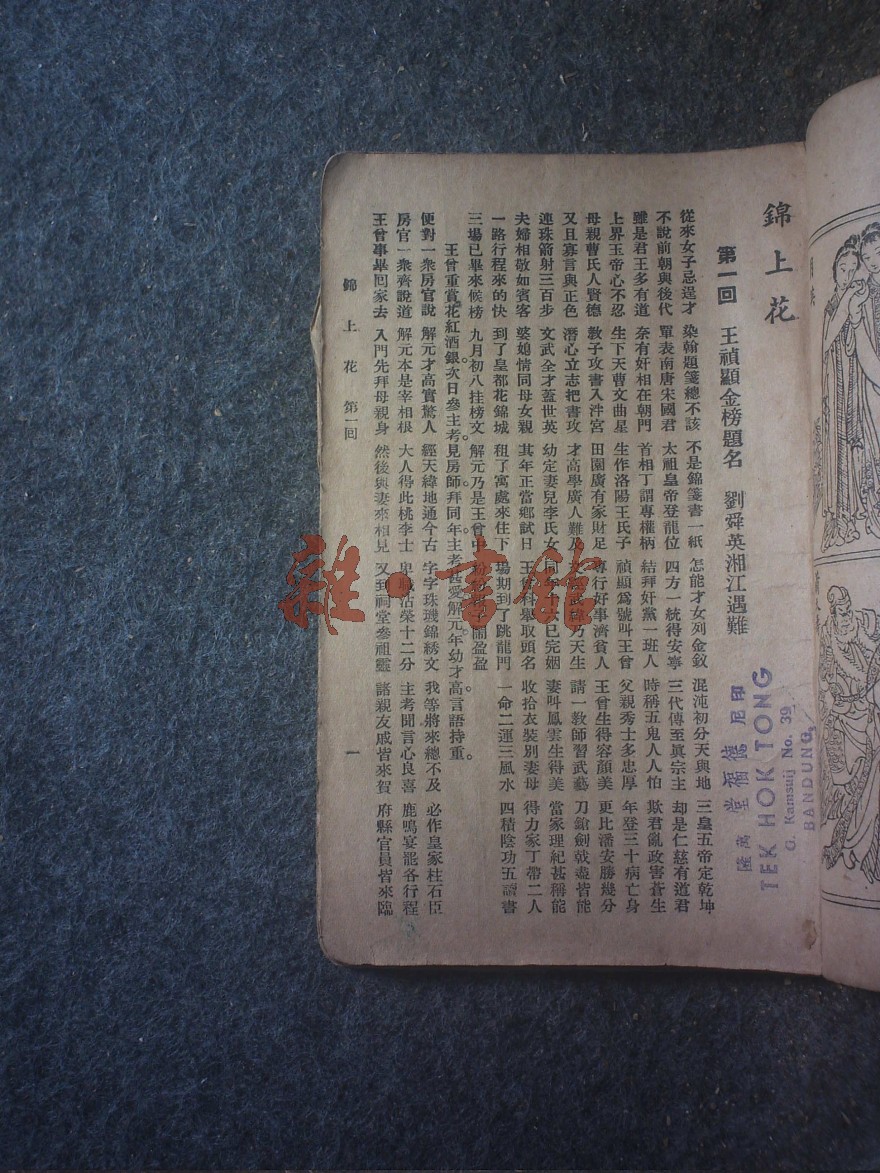 錦上花
第一回　王禎顯金榜題名　劉舜英湘江遇難
從來女子忌逞才　染翰題箋總不該　不是錦箋書一紙　怎能才女列金釵　混沌初分天與地　三皇五帝定乾坤
不說前朝與後代　單表南唐宋國君　太祖皇帝登龍位　四方一統得安寧　三代傳至眞宗主　却是仁慈有道君
雖是君王多有道　奈有奸相在朝門　首相丁謂專權柄　結拜奸黨一班人　時稱五鬼人人怕　欺君亂政害蒼生
上界玉帝心不忍　生下天曹文曲星　生作洛陽王氏子　禎顯爲號叫王曾　父親秀士多忠厚　年登三十病亡身
母親曹氏人賢德　敎子攻書入泮宮　田園廣有家財足　專行好事濟貧人　王曾生得容顏美　更比潘安勝幾分
又且寡言與正色　潛心立志把書攻　才高學廣人難及　文經武緯乃天生　請一敎師習武藝　刀鎗劍戟盡皆能
連珠箭射三百步　文武全才蓋世英　幼定妻兒李氏女　同年十六已完姻　妻叫鳳雲生得美　當家理紀甚稱能
夫婦相敬如賓客　婆媳情同母女親　其年正當鄉試日　王曾科舉取頭名　收拾衣裝別妻母　得力家丁帶二人
一路行程來的快　到了皇都花錦城　租了寓處來住下　場期到了跳龍門　一命二運三風水　四積陰功五讀書
三場已畢來候榜　九月初八挂榜文　解元乃是王曾中　紛紛報子鬧盈盈
王曾重賞花紅酒銀。次日參主考。見房師拜同年。主考甚愛解元年幼才高。言語持重。
便對一衆房官說　解元才高實驚人　經天緯地通今古　字字珠璣錦綉文　我等將來總不及　必作皇家柱石臣
房官一衆齊說道　解元本是宰相根　大人得此桃李士　卑職沾榮十二分　主考聞言心良喜　鹿鳴宴罷各行程
王曾事畢回家去　入門先拜母親身　然後與妻來相見　又到祠堂參祖靈　諸親友戚皆來賀　府縣官員皆來臨
錦上花　第一回　一
印尼　萬隆
德福堂
TEK HOK TONG
G. Kamsuij No. 39
BANDUNG
雜·書館